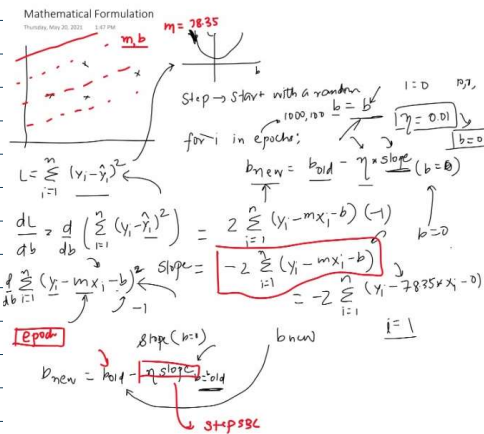 Mathematical Formulation
Thursday, May 20, 2021 1:47 PM
m = 78.35
m, b
b
Step → Start with a random b = b
i=0
1000, 100
η = 0.01
b=0
for i in epochs:
b_new = b_old - η * slope (b=0)
b=0
L = Σ_{i=1}^{n} (y_i - ŷ_i)²
dL/db = d/db (Σ_{i=1}^{n} (y_i - ŷ_i)²) = 2 Σ_{i=1}^{n} (y_i - mx_i - b) (-1)
d/db Σ_{i=1}^{n} (y_i - mx_i - b)²
-1
slope = -2 Σ_{i=1}^{n} (y_i - mx_i - b)
= -2 Σ_{i=1}^{n} (y_i - 78.35 * x_i - 0)
i = 1
epoch
slope (b=0)
b new
b_new = b_old - η slope b=b_old
step size